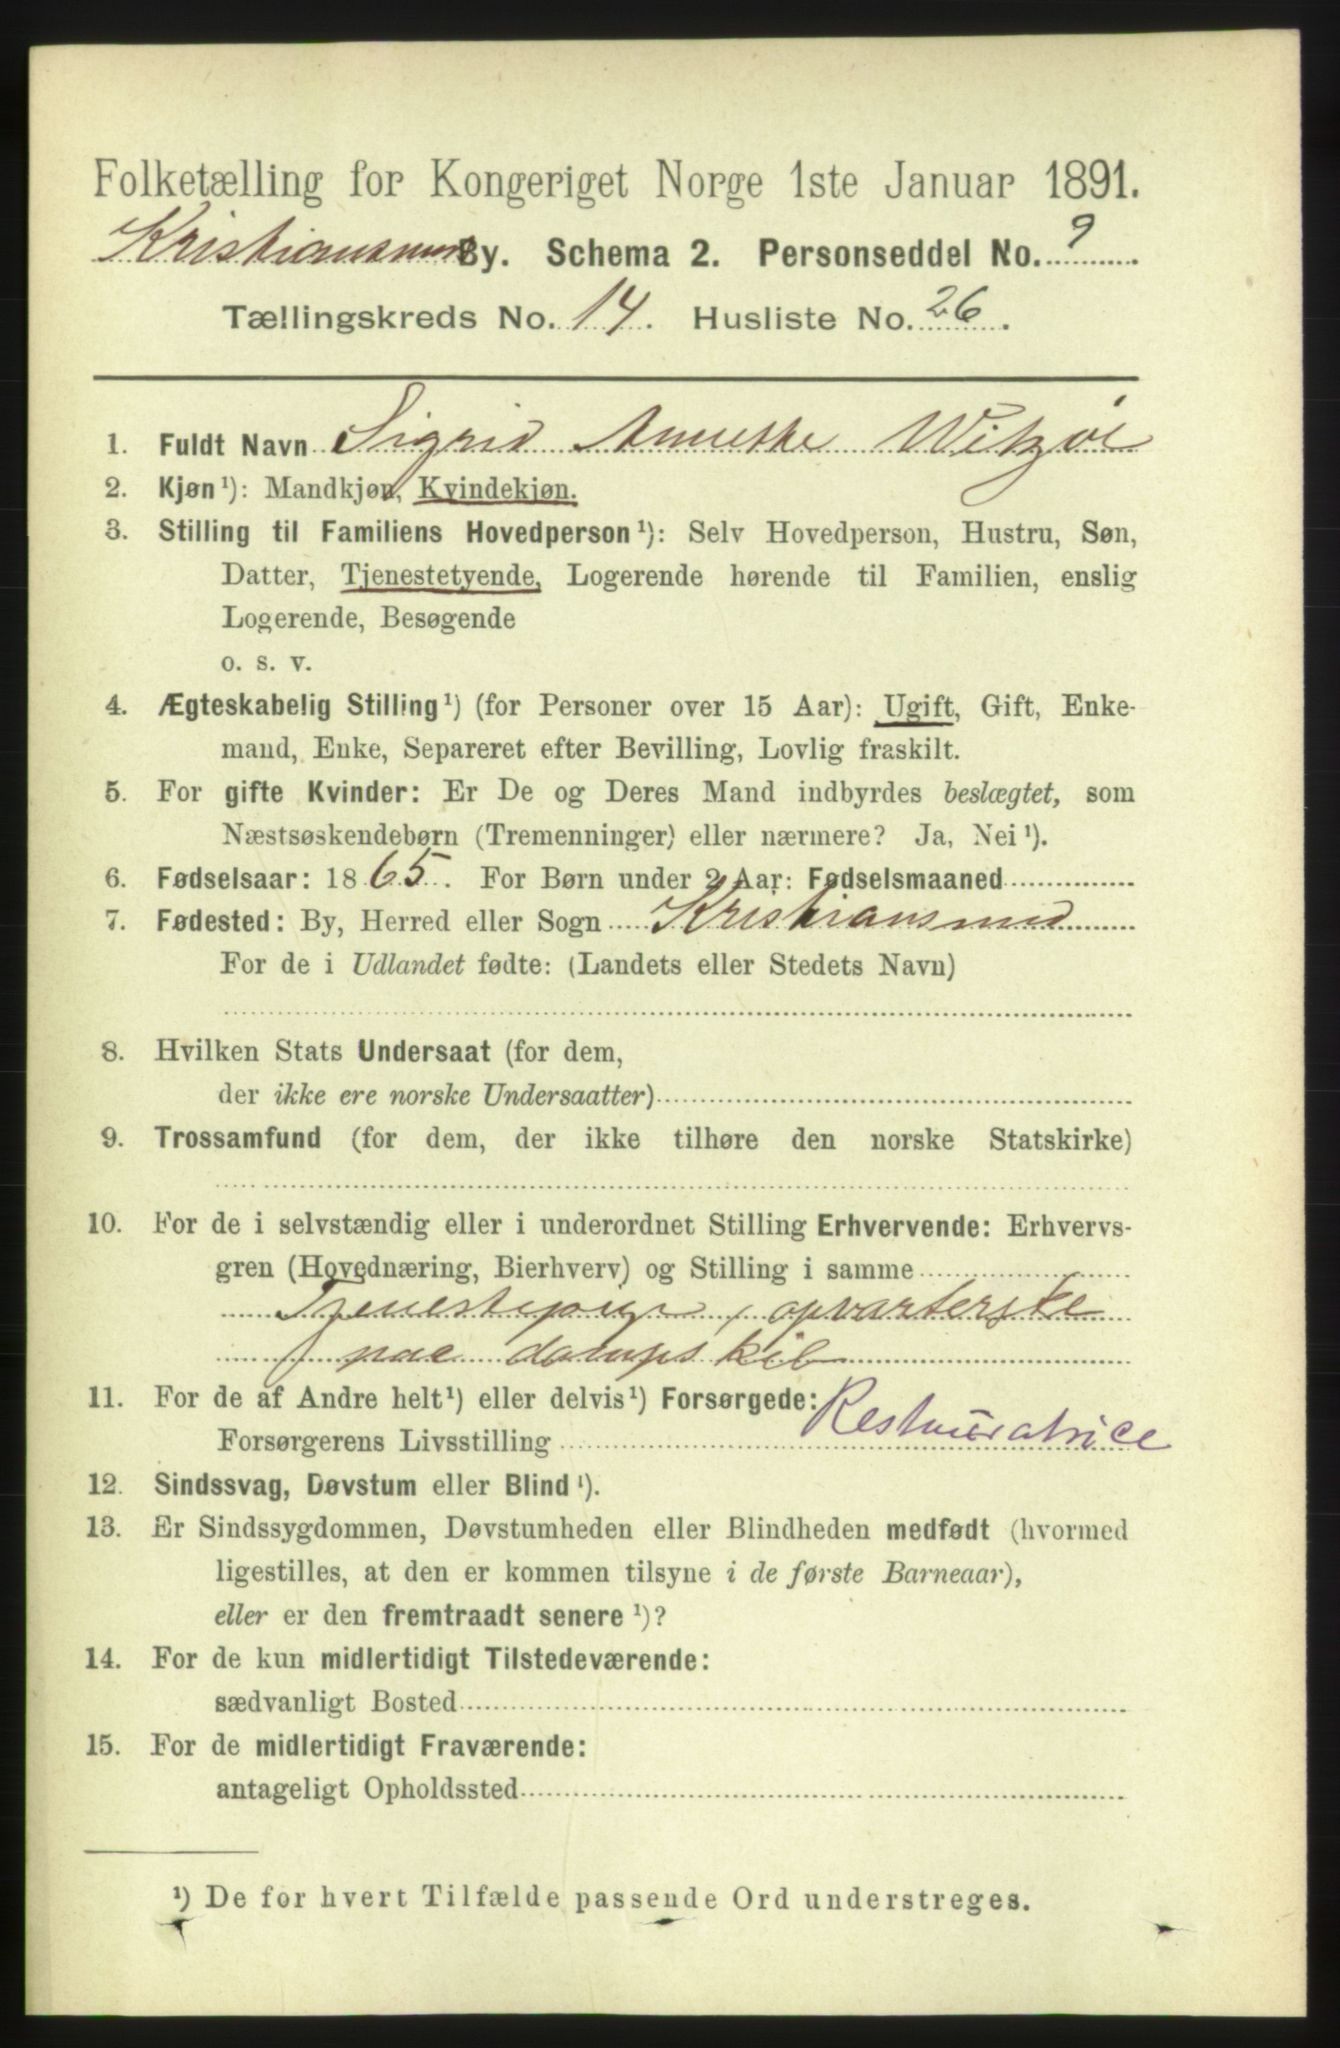 Folketælling for Kongeriget Norge 1ste Januar 1891.
Kristiansund By. Schema 2. Personseddel No. 9
Tællingskreds No. 14. Husliste No. 26.
1. Fuldt Navn Sigrid Anethe Witzøe
2. Kjøn¹): Mandkjøn, Kvindekjøn.
3. Stilling til Familiens Hovedperson¹): Selv Hovedperson, Hustru, Søn,
Datter, Tjenestetyende, Logerende hørende til Familien, enslig
Logerende, Besøgende
o. s. v.
4. Ægteskabelig Stilling¹) (for Personer over 15 Aar): Ugift, Gift, Enke-
mand, Enke, Separeret efter Bevilling, Lovlig fraskilt.
5. For gifte Kvinder: Er De og Deres Mand indbyrdes beslægtet, som
Næstsøskendebørn (Tremenninger) eller nærmere? Ja, Nei¹).
6. Fødselsaar: 1865. For Børn under 2 Aar: Fødselsmaaned
7. Fødested: By, Herred eller Sogn Kristiansund
For de i Udlandet fødte: (Landets eller Stedets Navn)
8. Hvilken Stats Undersaat (for dem,
der ikke ere norske Undersaatter)
9. Trossamfund (for dem, der ikke tilhøre den norske Statskirke)
10. For de i selvstændig eller i underordnet Stilling Erhvervende: Erhvervs-
gren (Hovednæring, Bierhverv) og Stilling i samme
Tjenestepige, opvarterske
paa dampskib
11. For de af Andre helt¹) eller delvis¹) Forsørgede: Restauratrice
Forsørgerens Livsstilling
12. Sindssvag, Døvstum eller Blind¹).
13. Er Sindssygdommen, Døvstumheden eller Blindheden medfødt (hvormed
ligestilles, at den er kommen tilsyne i de første Barneaar),
eller er den fremtraadt senere¹)?
14. For de kun midlertidigt Tilstedeværende:
sædvanligt Bosted
15. For de midlertidigt Fraværende:
antageligt Opholdssted
¹) De for hvert Tilfælde passende Ord understreges.